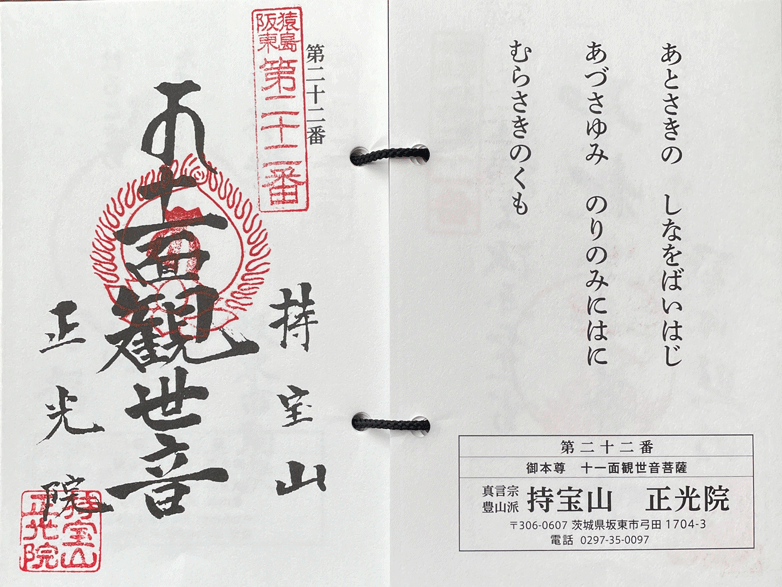 あとさきの　しなをばいはじ
あづさゆみ　のりのみにはに
むらさきのくも
第二十二番
御本尊　十一面観世音菩薩
真言宗
豊山派
持宝山　正光院
〒306-0607 茨城県坂東市弓田 1704-3
電話 0297-35-0097
第二十二番
猿島
阪東
第二十二番
持宝山
十一面観世音
正光院
持宝山
正光院